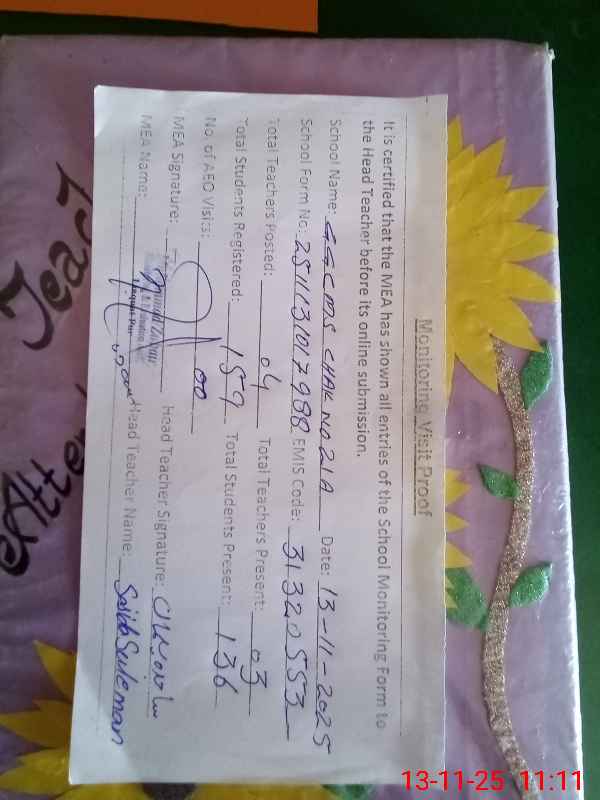 Monitoring Visit Proof
It is certified that the MEA has shown all entries of the School Monitoring Form to
the Head Teacher before its online submission.
School Name: GGCMS CHAK NO 21A Date: 13-11-2025
School Form No: 2511131017988 EMIS Code: 31320553
Total Teachers Posted: 04 Total Teachers Present: 03
Total Students Registered: 159 Total Students Present: 136
No. of AEO Visits: 00
MEA Signature: Head Teacher Signature:
MEA Name: Head Teacher Name: Suleman
Teach
Atten
13-11-25 11:11